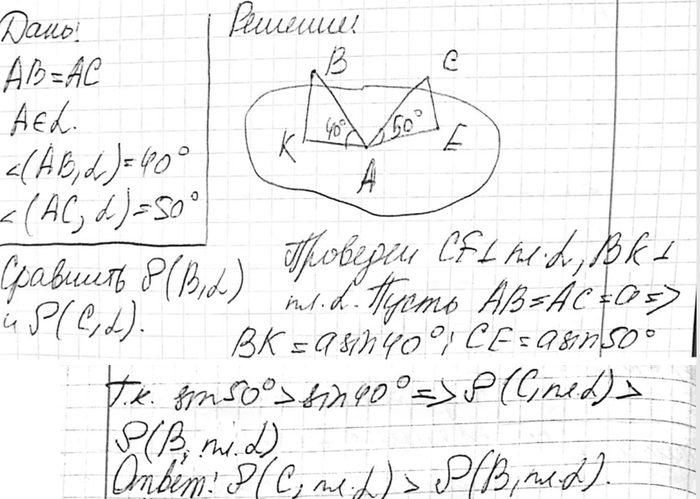 Дано:
AB=AC
A∈α.
∠(AB,α)=40°
∠(AC,α)=50°
Сравнить ρ(B,α)
и ρ(C,α).
Решение:
B C
40° 50°
K E
A
Проведем CE⊥пл.α, BK⊥
пл.α. Пусть AB=AC=a=>
BK=asin40°; CE=asin50°
Т.к. sin50°>sin40°=>ρ(C,пл.α)>
ρ(B,пл.α)
Ответ: ρ(C,пл.α)>ρ(B,пл.α).